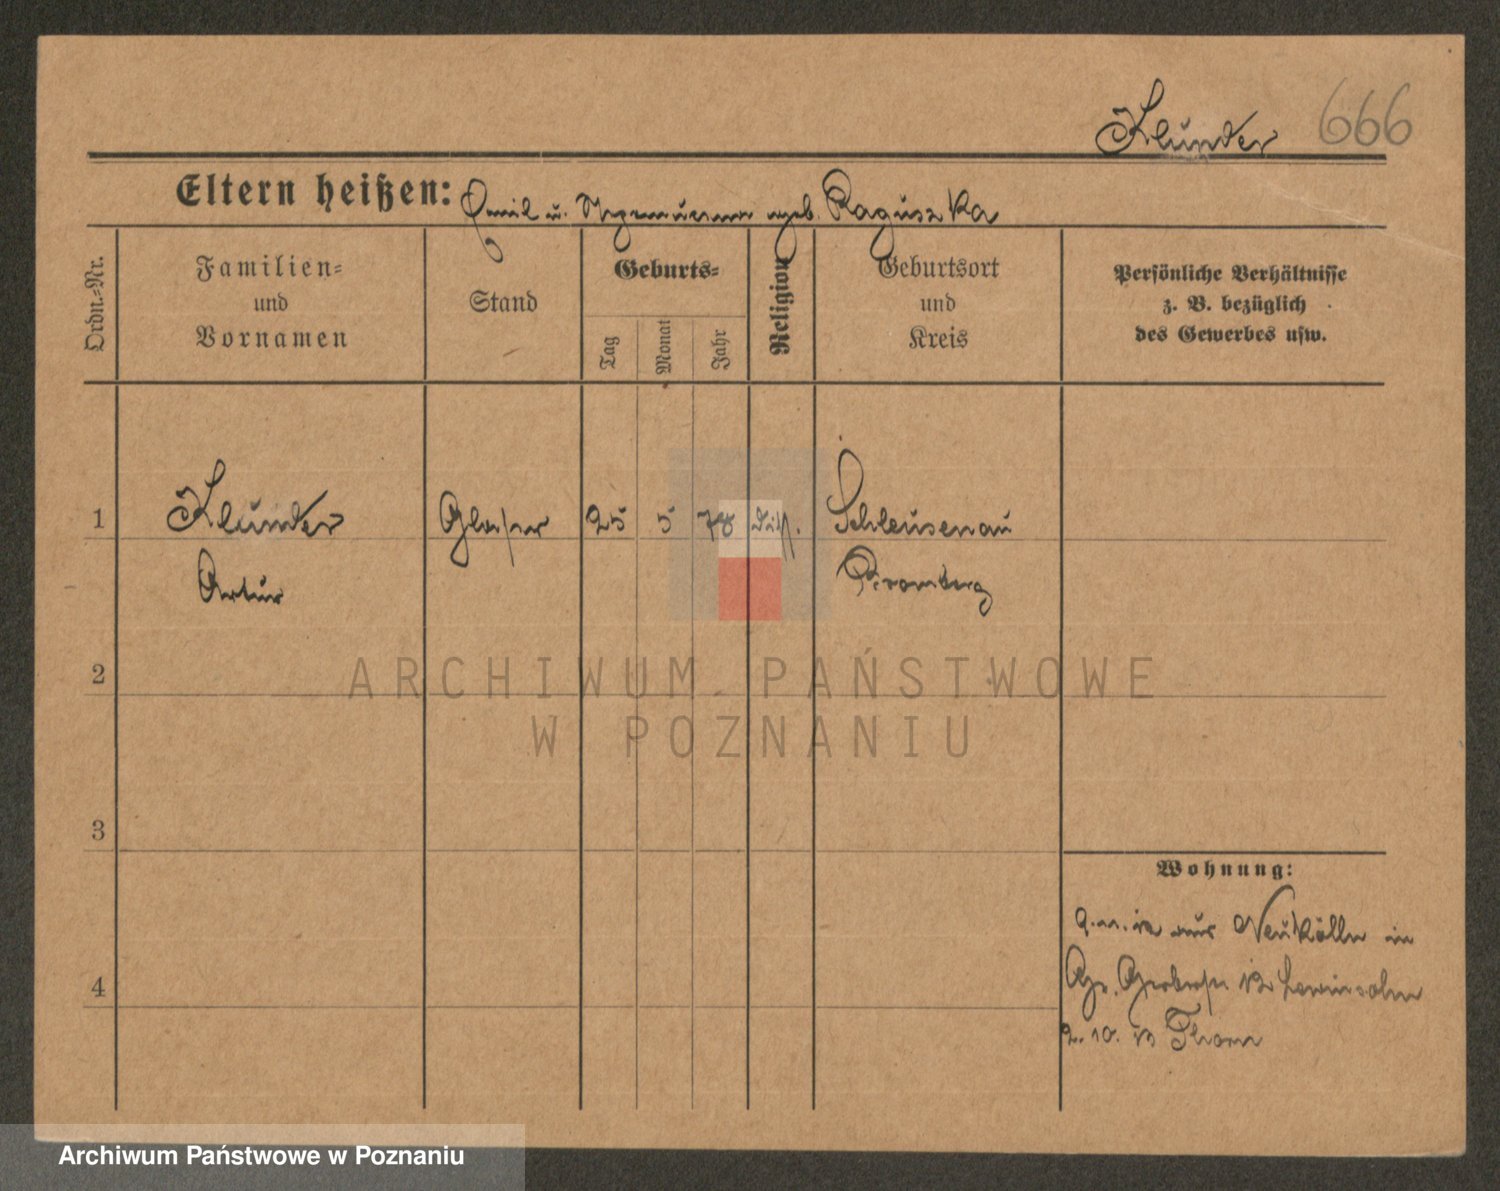 Klunder 666
Eltern heißen: Emil u. geb. Raguszka
Ordn.-Nr.
Familien-
und
Vornamen
Stand
Geburts-
Tag
Monat
Jahr
Religion
Geburtsort
und
Kreis
Persönliche Verhältnisse
z. B. bezüglich
des Gewerbes usw.
1 Klunder Glaser 25 5 78 diss. Schleusenau
Artur Bromberg
2
3
4
Wohnung:
aus Neukölln in
Gr. Gerberstr. Lewinsohn
2. 10. Thorn
ARCHIWUM PAŃSTWOWE
W POZNANIU
Archiwum Państwowe w Poznaniu